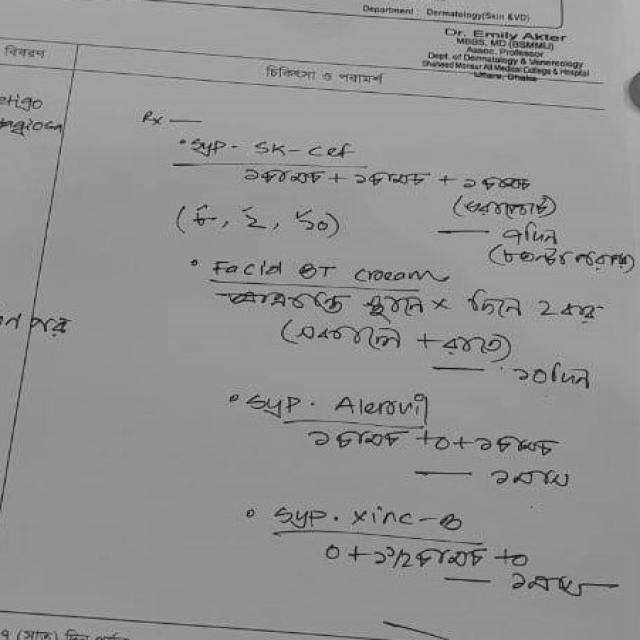 Department : Dermatology(Skin &VD)
Dr. Emily Akter
MBBS, MD (BSMMU)
Assoc. Professor
Dept. of Dermatology & Venereology
Shaheed Monsur Ali Medical College & Hospital
Uttara, Dhaka
বিবরণ
চিকিৎসা ও পরামর্শ
Rx —
• Syp - SK-cef
১ চামচ + ১ চামচ + ১ চামচ
(৬, ২, ১০)
— ৭ দিন
• Facid BT cream
স্থানে × দিনে ২ বার
(সকালে + রাতে)
— ১০ দিন
• Syp. Alerovil
১ চামচ + ০ + ১ চামচ
— ১ মাস
• Syp. Xinc-B
০ + ১ ১/২ চামচ + ০
— ১ মাস
৭ (সাত) দিন